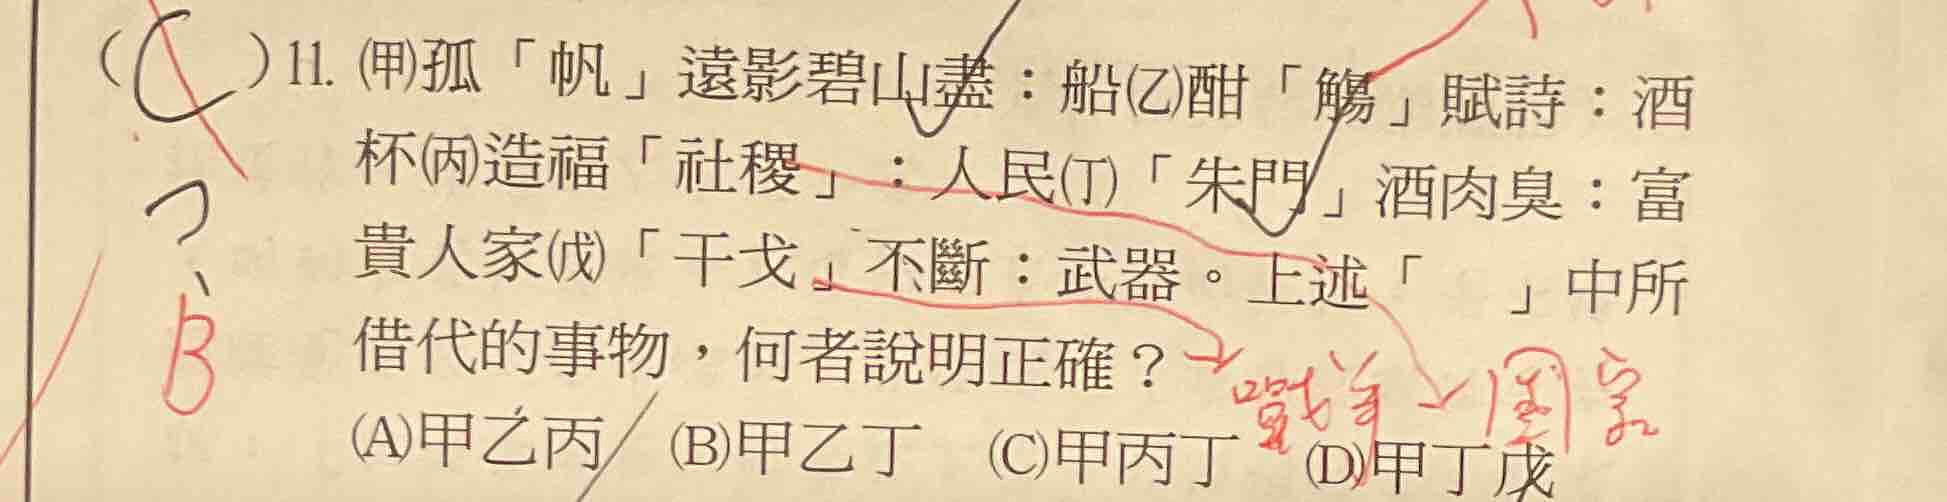 (C)11. ㈙孤「帆」遠影碧山盡：船㈚酣「觴」賦詩：酒
杯㈛造福「社稷」：人民㈜「朱門」酒肉臭：富
貴人家㈝「干戈」不斷：武器。上述「　」中所
借代的事物，何者說明正確？
?
B
戰爭 國家
(A)甲乙丙 (B)甲乙丁 (C)甲丙丁 (D)甲丁戊